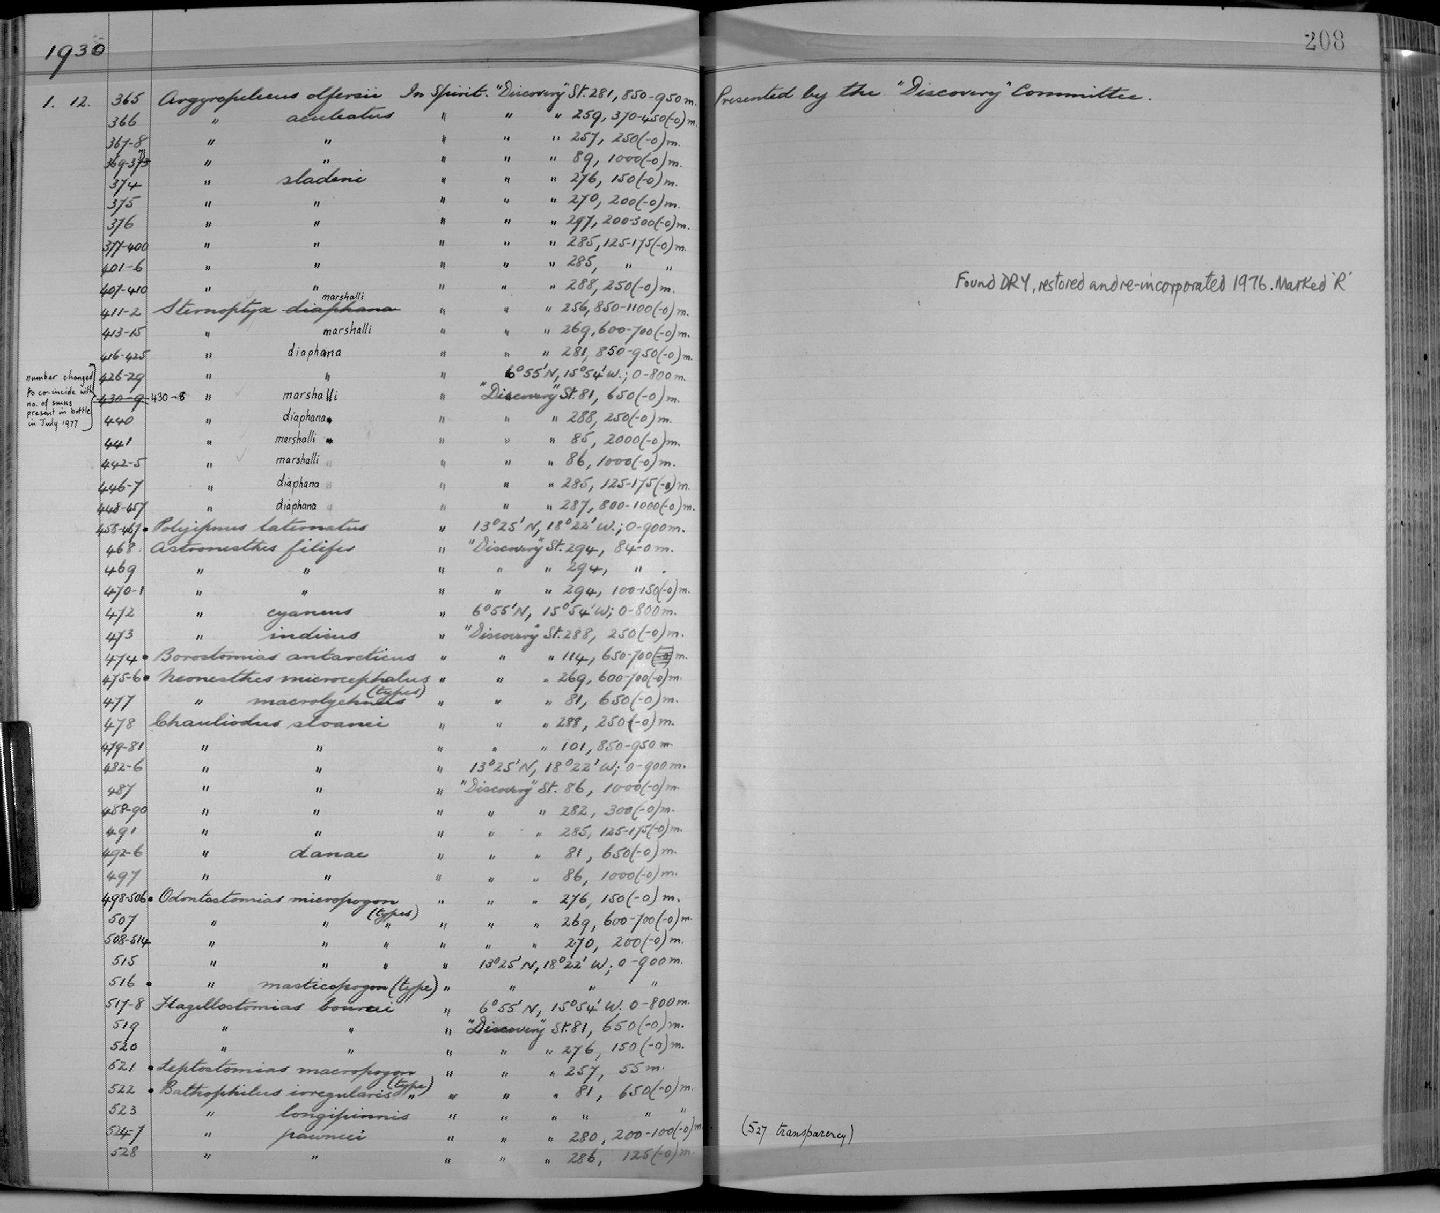 1930
208
1. 12. 365 Argyropelecus olfersii In Spirit. "Discovery" St. 281, 850-950 m. Presented by the "Discovery" Committee.
366 " aculeatus " " " 259, 370-450(-0) m.
367-8 " " " " " 257, 250(-0) m.
369-373 " " " " " 89, 1000(-0) m.
374 " sladeni " " " 276, 150(-0) m.
375 " " " " " 270, 200(-0) m.
376 " " " " " 297, 200-300(-0) m.
377-400 " " " " " 285, 125-175(-0) m.
401-6 " " " " " 285, " "
407-410 " " " " " 288, 250(-0) m. Found DRY, restored and re-incorporated 1976. Marked 'R'
marshalli
411-2 Sternoptyx diaphana " " " 256, 850-1100(-0) m.
413-15 " marshalli " " " 269, 600-700(-0) m.
416-425 " diaphana " " " 281, 850-950(-0) m.
426-29 " " " 6°55'N, 15°54'W.; 0-800 m.
number changed to co-incide with no. of specs present in bottle in July 1977
430-9 430-8 " marshalli " "Discovery" St. 81, 650(-0) m.
440 " diaphana " " " 288, 250(-0) m.
441 " marshalli " " " 85, 2000(-0) m.
442-5 " marshalli " " " 86, 1000(-0) m.
446-7 " diaphana " " " 285, 125-175(-0) m.
448-457 " diaphana " " " 287, 800-1000(-0) m.
458-467 • Polyipnus laternatus " 13°25'N, 18°22'W.; 0-900 m.
468 Astronesthes filifer " "Discovery" St. 294, 84-0 m.
469 " " " " " 294, " .
470-1 " " " " " 294, 100-150(-0) m.
472 " cyaneus " 6°55'N, 15°54'W; 0-800 m.
473 " indicus " "Discovery" St. 288, 250(-0) m.
474 • Borostomias antarcticus " " " 114, 650-700(-0) m.
475-6 • Neonesthes microcephalus " " " 269, 600-700(-0) m.
(types)
477 " macrolychnus " " " 81, 650(-0) m.
478 Chauliodus sloanei " " " 288, 250(-0) m.
479-81 " " " " " 101, 850-950 m
482-6 " " " 13°25'N, 18°22'W; 0-900 m.
487 " " " "Discovery" St. 86, 1000(-0) m.
488-90 " " " " " 282, 300(-0) m.
491 " " " " " 285, 125-175(-0) m.
492-6 " danae " " " 81, 650(-0) m.
497 " " " " " 86, 1000(-0) m.
498-506 • Odontostomias micropogon " " " 276, 150(-0) m.
(types)
507 " " " " " " 269, 600-700(-0) m.
508-514 " " " " " " 270, 200(-0) m.
515 " " " " 13°25'N, 18°22'W; 0-900 m.
516 • " masticopogon (type) " " " "
517-8 Flagellostomias boureei " 6°55'N, 15°54'W. 0-800 m.
519 " " " "Discovery" St. 81, 650(-0) m.
520 " " " " " 276, 150(-0) m.
521 • Leptostomias macropogon " " " 257, 55 m.
(type)
522 • Bathophilus irregularis " " " " 81, 650(-0) m.
523 " longipinnis " " " " " "
524-7 " pawneei " " " 280, 200-100(-0) m. (527 transparency)
528 " " " " " 286, 125(-0) m.